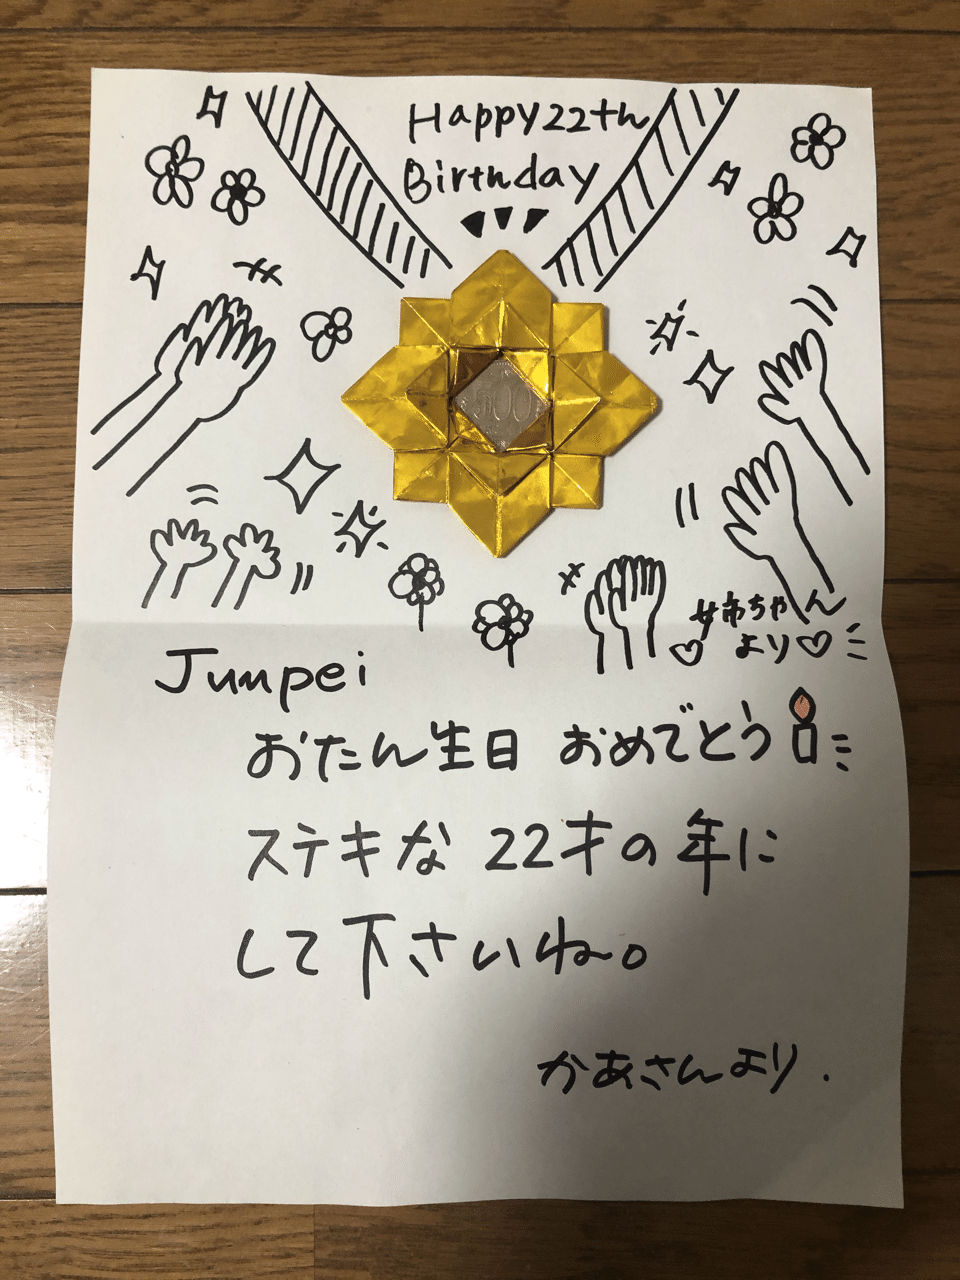 Happy 22th
Birthday
500
姉ちゃん
より
Jumpei
おたん生日 おめでとう
ステキな 22才の年に
して下さいね。
かあさんより.